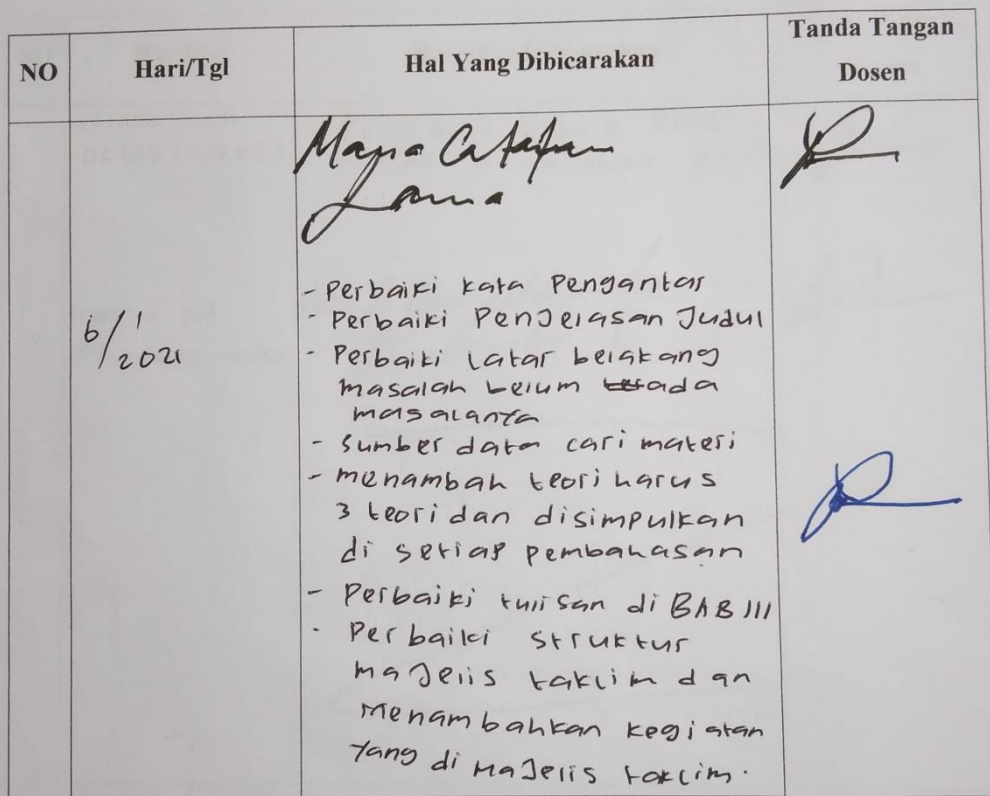 NO
Hari/Tgl
Hal Yang Dibicarakan
Tanda Tangan
Dosen
Mana
Lama
6/1
2021
- Perbaiki kata Pengantar
- Perbaiki Penjelasan Judul
- Perbaiki Latar belakang
masalah belum ada
masalanya
- sumber data cari materi
- menambah teori harus
3 teori dan disimpulkan
di setiap pembahasan
- Perbaiki tulisan di BAB III
- Perbaiki struktur
majelis taklim dan
Menambahkan kegiatan
yang di Majelis taklim.